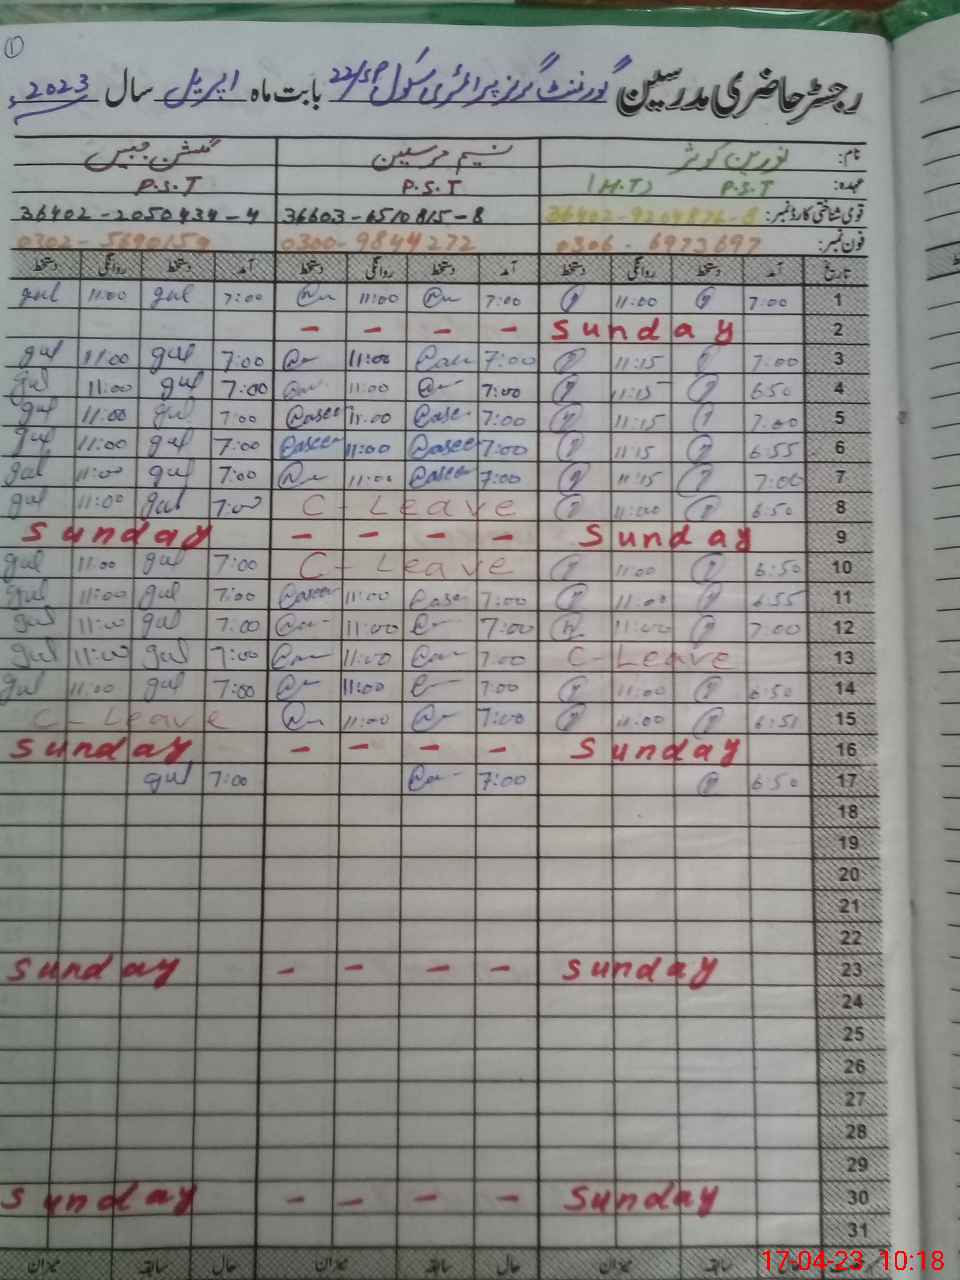 ①
رجسٹر حاضری مدرسین گورنمنٹ گرلز پرائمری سکول 22/SP بابت ماہ اپریل سال 2023ء
نام: نورین کوثر نسیم مرسلین گلشن جبیں
عہدہ: P.S.T (H.T) P.S.T P.S.T
قومی شناختی کارڈ نمبر: 36402-9204876-8 36603-6510815-8 36402-2050434-4
فون نمبر: 0306-6973697 0300-9844272 0302-5690159
تاریخ آمد دستخط روانگی دستخط آمد دستخط روانگی دستخط آمد دستخط روانگی دستخط
1 7:00 11:00 7:00 11:00 7:00 gul 11:00 gul
2 Sunday - - - -
3 7:00 11:15 7:00 11:00 7:00 gul 11:00 gul
4 6:50 11:15 7:00 11:00 7:00 gul 11:00 gul
5 7:00 11:15 7:00 11:00 7:00 gul 11:00 gul
6 6:55 11:15 7:00 11:00 7:00 gul 11:00 gul
7 7:00 11:15 7:00 11:00 7:00 gul 11:00 gul
8 6:50 11:00 C-Leave 7:00 gul 11:00 gul
9 Sunday - - - - Sunday
10 6:50 11:00 C-Leave 7:00 gul 11:00 gul
11 6:55 11:00 7:00 11:00 7:00 gul 11:00 gul
12 7:00 11:00 7:00 11:00 7:00 gul 11:00 gul
13 C-Leave 7:00 11:00 7:00 gul 11:00 gul
14 6:50 11:00 7:00 11:00 7:00 gul 11:00 gul
15 6:51 11:00 7:00 11:00 C-Leave
16 Sunday - - - - Sunday
17 6:50 7:00 7:00 gul
18
19
20
21
22
23 Sunday - - - - Sunday
24
25
26
27
28
29
30 Sunday - - - - Sunday
31
حال سابقہ میزان حال سابقہ میزان
17-04-23 10:18